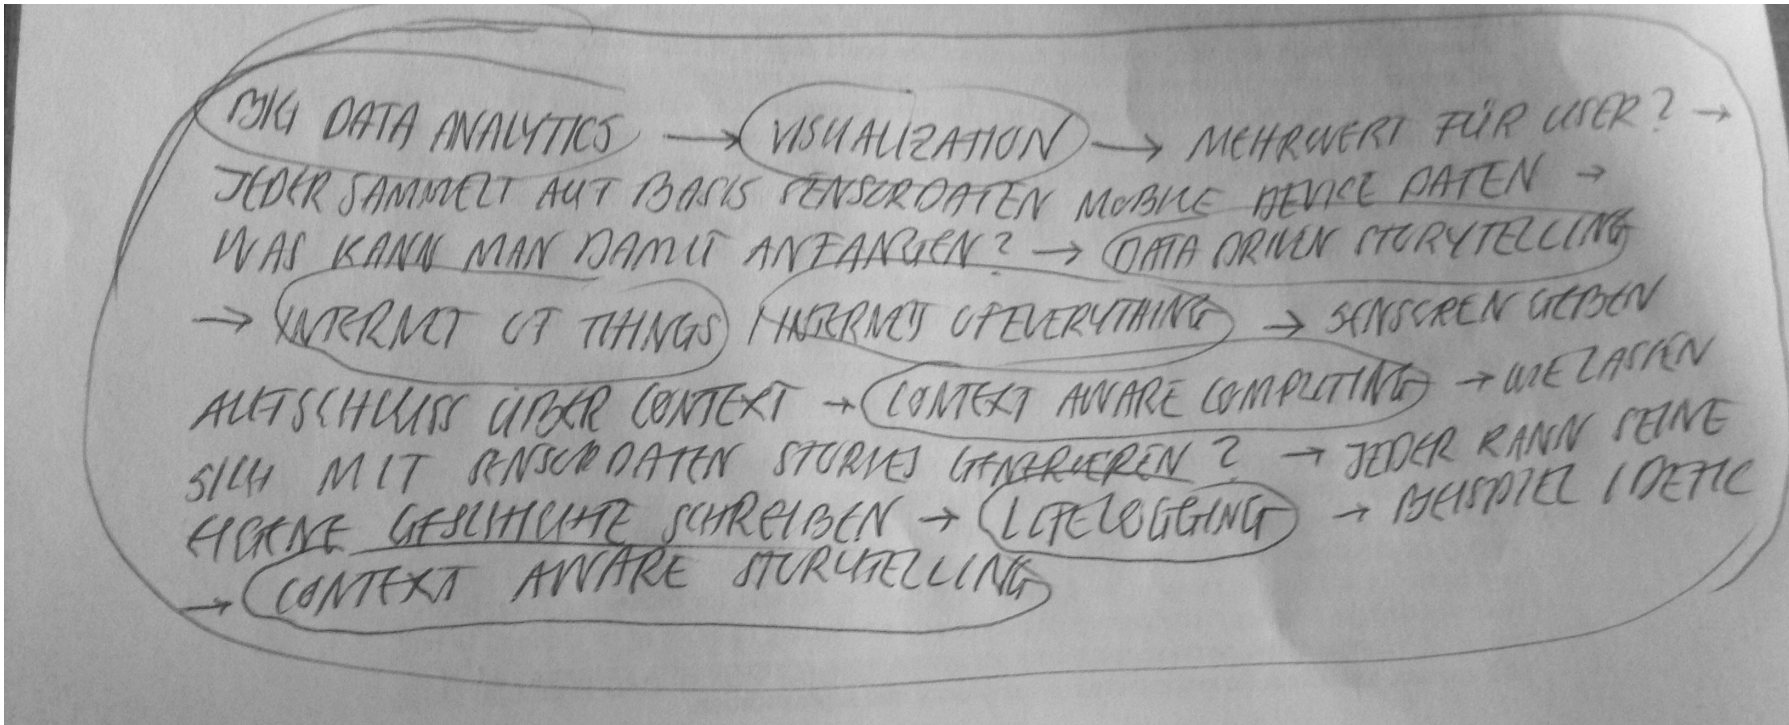 BIG DATA ANALYTICS → VISUALIZATION → MEHRWERT FÜR USER? →
JEDER SAMMELT AUF BASIS SENSORDATEN MOBILE DEVICE DATEN →
WAS KANN MAN DAMIT ANFANGEN? → DATA DRIVEN STORYTELLING
→ INTERNET OF THINGS / INTERNET OF EVERYTHING → SENSOREN GEBEN
AUFSCHLUSS ÜBER CONTEXT → CONTEXT AWARE COMPUTING → WIE LASSEN
SICH MIT SENSORDATEN STORIES GENERIEREN? → JEDER KANN SEINE
EIGENE GESCHICHTE SCHREIBEN → LIFELOGGING → BEISPIEL
→ CONTEXT AWARE STORYTELLING